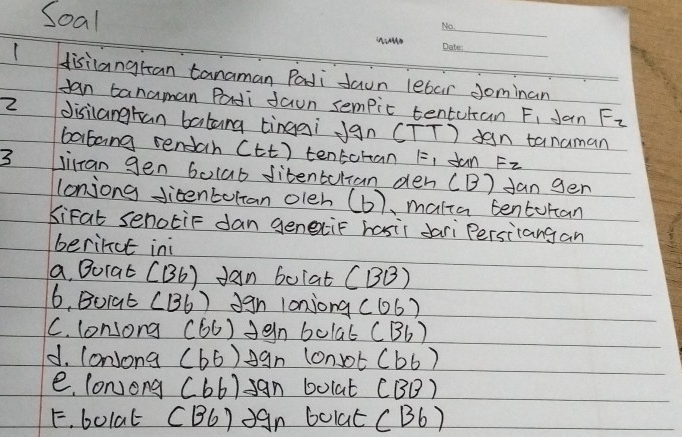 Soal
No.
Date:
1 disilangkan tanaman Padi daun lebar dominan
dan tanaman Padi daun sempit tentukan F1 dan F2
2 disilangkan batang tinggi dgn (TT) dgn tanaman
batang rendah (tt) tentukan F1 dan F2
3 Jikan gen bulat ditentukan oleh (B) dan gen
lonjong ditentukan oleh (b), maka tentukan
sifat senotif dan genetif hasil dari Persilangan
berikut ini
a. Bulat (Bb) dgn bulat (BB)
b. Bulat (Bb) dgn lonjong (bb)
c. lonjong (bb) dgn bulat (Bb)
d. lonjong (bb) dgn lonjot (bb)
e. lonjong (bb) dgn bulat (BB)
F. bulat (Bb) dgn bulat (Bb)